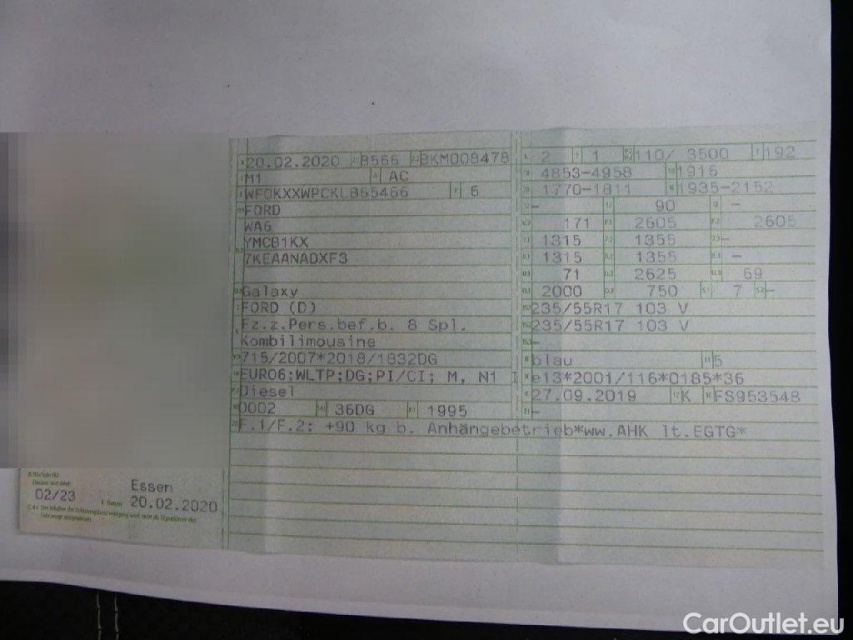 20.02.2020 8566 BKM008478 2 1 110/ 3500 192
M1 AC 4853-4958 1916
WF0KXXWPCKL865466 6 1770-1811 1935-2152
FORD - 90 -
WA6 171 2605 2605
YMCB1KX 1315 1355 -
7KEAANADXF3 1315 1355 -
71 2625 69
Galaxy 2000 750 7 -
FORD (D) 235/55R17 103 V
Fz.z.Pers.bef.b. 8 Spl. 235/55R17 103 V
Kombilimousine -
715/2007*2018/1832DG blau 5
EURO6;WLTP;DG;PI/CI; M, N1 I e13*2001/116*0185*36
Diesel 27.09.2019 K FS953548
0002 36DG 1995 -
F.1/F.2: +90 kg b. Anhängebetrieb*ww.AHK lt.EGTG*
Essen
02/23 20.02.2020
CarOutlet.eu